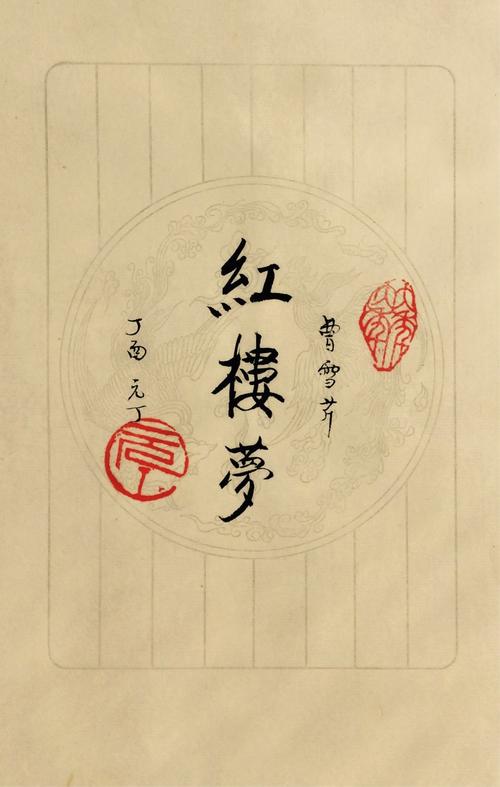 曹雪芹
紅樓夢
丁酉 元丁